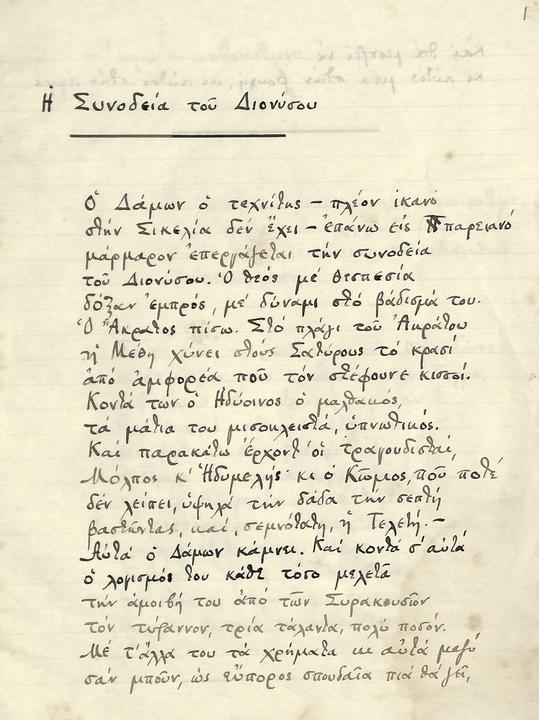 1
Ἡ Συνοδεία τοῦ Διονύσου
Ὁ Δάμων ὁ τεχνίτης – πλέον ἱκανό
στὴν Σικελία δὲν ἔχει – ἐπάνω εἰς παρειανό
μάρμαρον ἐπεργάζεται τὴν συνοδεία
τοῦ Διονύσου. Ὁ θεὸς μὲ θεσπεσία
δόξαν ἐμπρός, μὲ δύναμι στὸ βάδισμά του.
Ὁ Ἄκρατος πίσω. Στὸ πλάγι τοῦ Ἀκράτου
ἡ Μέθη χύνει στοὺς Σατύρους τὸ κρασί
ἀπὸ ἀμφορέα ποῦ τὸν στέφουνε κισσοί.
Κοντά των ὁ Ἡδύοινος ὁ μαλθακός,
τὰ μάτια του μισοκλειστά, ὑπνωτικός.
Καὶ παρακάτω ἔρχοντ' οἱ τραγουδισταί,
Μόλπος κ' Ἡδυμελής· κι ὁ Κῶμος, ποῦ ποτέ
δὲν λείπει, ὑψηλὰ τὴν δᾷδα τὴν σεπτή
βαστῶντας, καί, σεμνότατη, ἡ Τελετή. –
Αὐτὰ ὁ Δάμων κάμνει. Καὶ κοντὰ σ' αὐτά
ὁ λογισμός του κάθε τόσο μελετᾷ
τὴν ἀμοιβή του ἀπὸ τῶν Συρακουσῶν
τὸν τύραννον, τρία τάλαντα, πολὺ ποσόν.
Μὲ τ' ἄλλα του τὰ χρήματα κι αὐτὰ μαζύ
σὰν μποῦν, ὡς εὔπορος σπουδαῖα πιὰ θὰ ζεῖ,